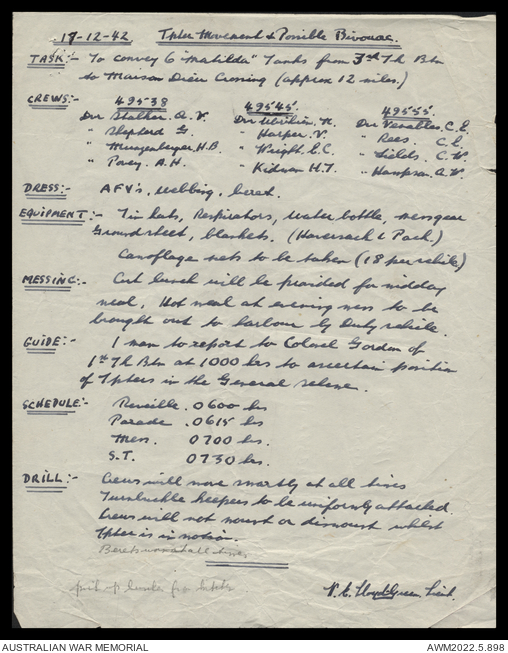 17-12-42 Tpter Movement & Possible Bivouac.
TASK:- To convey 6 "Matilda" Tanks from 3rd Th Btn
to Maison Dieu Crossing (approx 12 miles.)
CREWS:- 49538 49545 49555
Dvr Stalker. A. V. Dvr N. Dvr Venables. C. E.
" Shepherd G. " Harper. V. " Rees. C. E.
" Munzenberger, H.B. " Wright. E. C. " Fields. C. W.
" Povey. A. H. " Kidman H. T. " Hampson. A. W.
DRESS:- AFV's, webbing, beret.
EQUIPMENT:- Tin hats, Respirators, water bottle, messgear
Groundsheet, blankets. (Haversack & Pack.)
Camoflage nets to be taken (18 per vehicle)
MESSING:- Cut lunch will be provided for midday
meal. Hot meal at evening mess to be
brought out to harbour by Duty vehicle.
GUIDE:- 1 man to report to Colonel Gordon of
1st Th Btn at 1000 hrs to ascertain position
of Tpters in the General scheme.
SCHEDULE:- Reveille. 0600 hrs
Parade. 0615 hrs
Mess. 0700 hrs.
S.T. 0730 hrs.
DRILL:- Crews will move smartly at all times
Turnbuckle keepers to be uniformly attached.
Crews will not mount or dismount whilst
Tpter is in motion.
Berets worn at all times
pick up from
V. E. Lloyd-Green Lieut.
AUSTRALIAN WAR MEMORIAL AWM2022.5.898